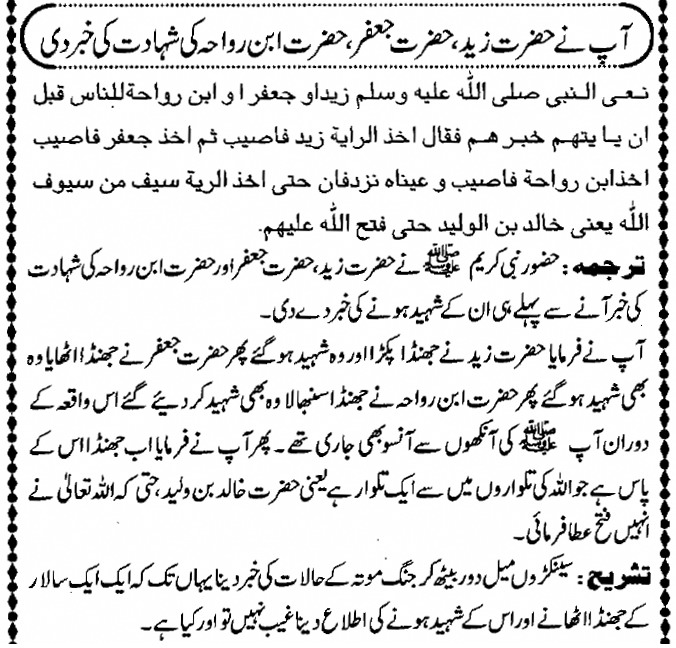 آپ نے حضرت زید، حضرت جعفر، حضرت ابن رواحہ کی شہادت کی خبر دی
نعی النبی صلی اللہ علیہ وسلم زیداو جعفرا و ابن رواحة للناس قبل
ان یا یتھم خبر ھم فقال اخذ الرایة زید فاصیب ثم اخذ جعفر فاصیب
اخذابن رواحة فاصیب و عیناہ نزدفان حتی اخذ الریة سیف من سیوف
اللہ یعنی خالد بن الولید حتی فتح اللہ علیھم۔
ترجمہ: حضور نبی کریم ﷺ نے حضرت زید، حضرت جعفر اور حضرت ابن رواحہ کی شہادت
کی خبر آنے سے پہلے ہی ان کے شہید ہونے کی خبر دے دی۔
آپ نے فرمایا حضرت زید نے جھنڈا پکڑا اور وہ شہید ہو گئے پھر حضرت جعفر نے جھنڈا اٹھایا وہ
بھی شہید ہو گئے پھر حضرت ابن رواحہ نے جھنڈا سنبھالا وہ بھی شہید کر دیئے گئے اس واقعہ کے
دوران آپ ﷺ کی آنکھوں سے آنسو بھی جاری تھے۔ پھر آپ نے فرمایا اب جھنڈا اس کے
پاس ہے جو اللہ کی تلواروں میں سے ایک تلوار ہے یعنی حضرت خالد بن ولید، حتی کہ اللہ تعالیٰ نے
انہیں فتح عطا فرمائی۔
تشریح: سینکڑوں میل دور بیٹھ کر جنگ موتہ کے حالات کی خبر دینا یہاں تک کہ ایک ایک سالار
کے جھنڈا اٹھانے اور اس کے شہید ہونے کی اطلاع دینا غیب نہیں تو اور کیا ہے۔